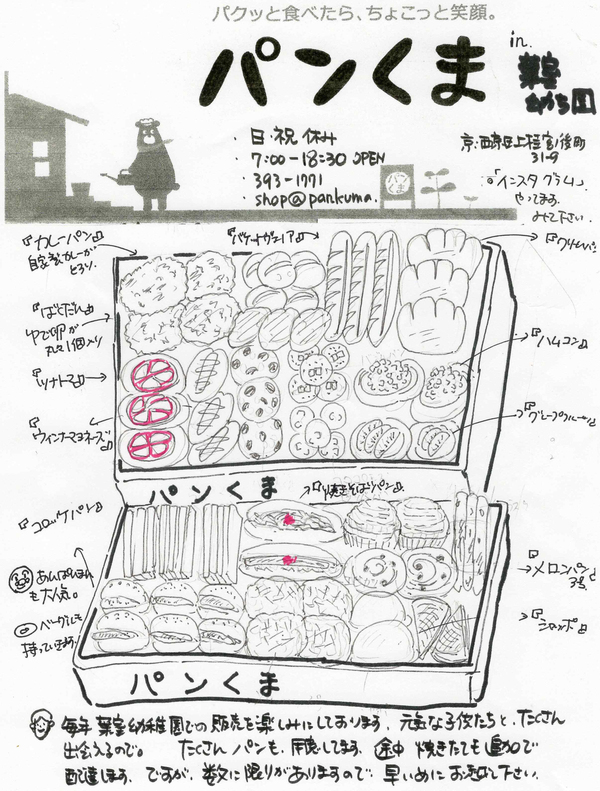 パクッと食べたら、ちょこっと笑顔。
パンくま
in.
葉室
幼ち園
・日・祝 休み
・7:00-18:30 OPEN
・393-1771
・shop@pankuma.
31-9
『インスタグラム』
やってます。
みて下さい。
パン
くま
『カレーパン』
自家製カレーが
とろり。
『ばくだん』
ゆで卵が
丸々1個入り
『ツナトマ』
『ウィンナーマヨネーズ』
『バケットガーリア』
『クリームパン』
『ハムコーン』
『グレープフルーツ』
パンくま
『焼きそばパン』
『コロッケパン』
あんぱんまん
も大人気。
ベーグルも
持っていきます。
『メロンパン』
『シャッポ』
パンくま
毎年 葉室幼稚園での販売を楽しみにしております。元気な子供たちと、たくさん
出会えるので。 たくさん パンも、用意してます。途中 焼きたても追加で
配達します。ですが、数に限りがありますので、早いめにお越し下さい。